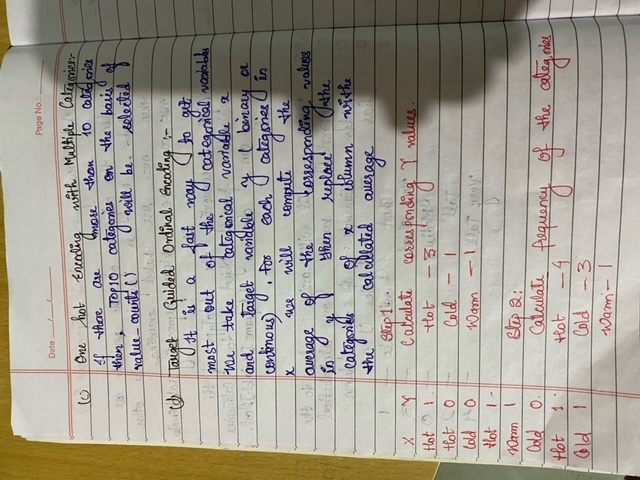 Date / /
Page No.:
(c) One hot Encoding with Multiple Categories:-
If there are more than 10 categories
then, Top10 categories on the basis of
value-counts() will be selected
(d) Target Guided Ordinal Encoding :-
It is a fast way to get
most out of the categorical variables
We take categorical variable x
and target variable y (binary or
continous). For each categories in
x we will compute the
average of the corresponding values
in y then replace the
categories of x column withe
the calculated average
Step 1:
X Y Calculate corresponding Y values.
Hot 1 Hot - 3
Hot 0 Cold - 1
Cold 0 Warm - 1
Hot 1
Warm 1 Step 2:
Cold 0 Calculate frequency of the categories
Hot 1 Hot - 4
Cold 1 Cold - 3
Warm - 1